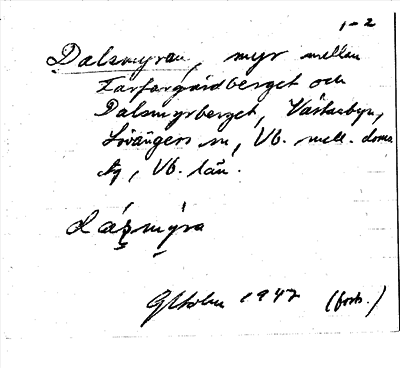 1-2
Dalsmyran, myr mellan
Farfargårdberget och
Dalsmyrberget, Västerbyn,
Lövångers sn, Vb. mell. doms.
Vb. län.
1947 (forts.)